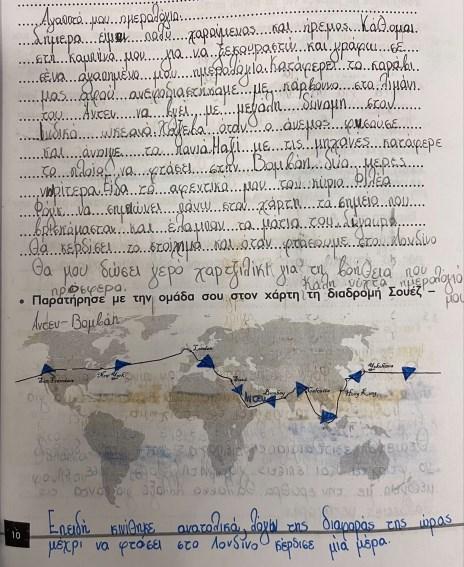 Αγαπητό μου ημερολόγιο
Σήμερα είμαι πολύ χαρούμενος και ήρεμος. Κάθομαι
στη καμπίνα μου για να ξεκουραστώ και γράφω σε
σένα αγαπημένο μου ημερολόγιο. Κατάφερε το καράβι
μας αφού ανεφοδιαστήκαμε με κάρβουνο στο λιμάνι
του Άντεν να βγει με μεγάλη δύναμη στον
Ινδικό ωκεανό. όταν ο άνεμος φυσούσε
και άνοιγε τα πανιά. Μαζί με τις μηχανές κατάφερε
το πλοίο να φτάσει στην Βομβάη δύο μέρες
νωρίτερα. Είδα το αφεντικό μου τον κύριο Φιλέα
Φογκ να σημειώνει πάνω στο χάρτη το σημείο που
βρισκόμασταν και έλαμπαν τα μάτια του. Σίγουρα
θα κερδίσει το στοίχημα και όταν φτάσουμε στο Λονδίνο
θα μου δώσει γερό χαρτζιλίκι για τη βοήθεια που
πρόσφερα. Καλή νύχτα ημερολόγιό
μου
• Παρατήρησε με την ομάδα σου στον χάρτη τη διαδρομή Σουέζ –
Άντεν - Βομβάη
London
San Francisco
New York
Yokohama
Suez
Άντεν
Bombay
Calcutta
Hong Kong
Επειδή κινήθηκε ανατολικά, λόγω της διαφοράς της ώρας
μέχρι να φτάσει στο Λονδίνο κέρδισε μία μέρα.
10